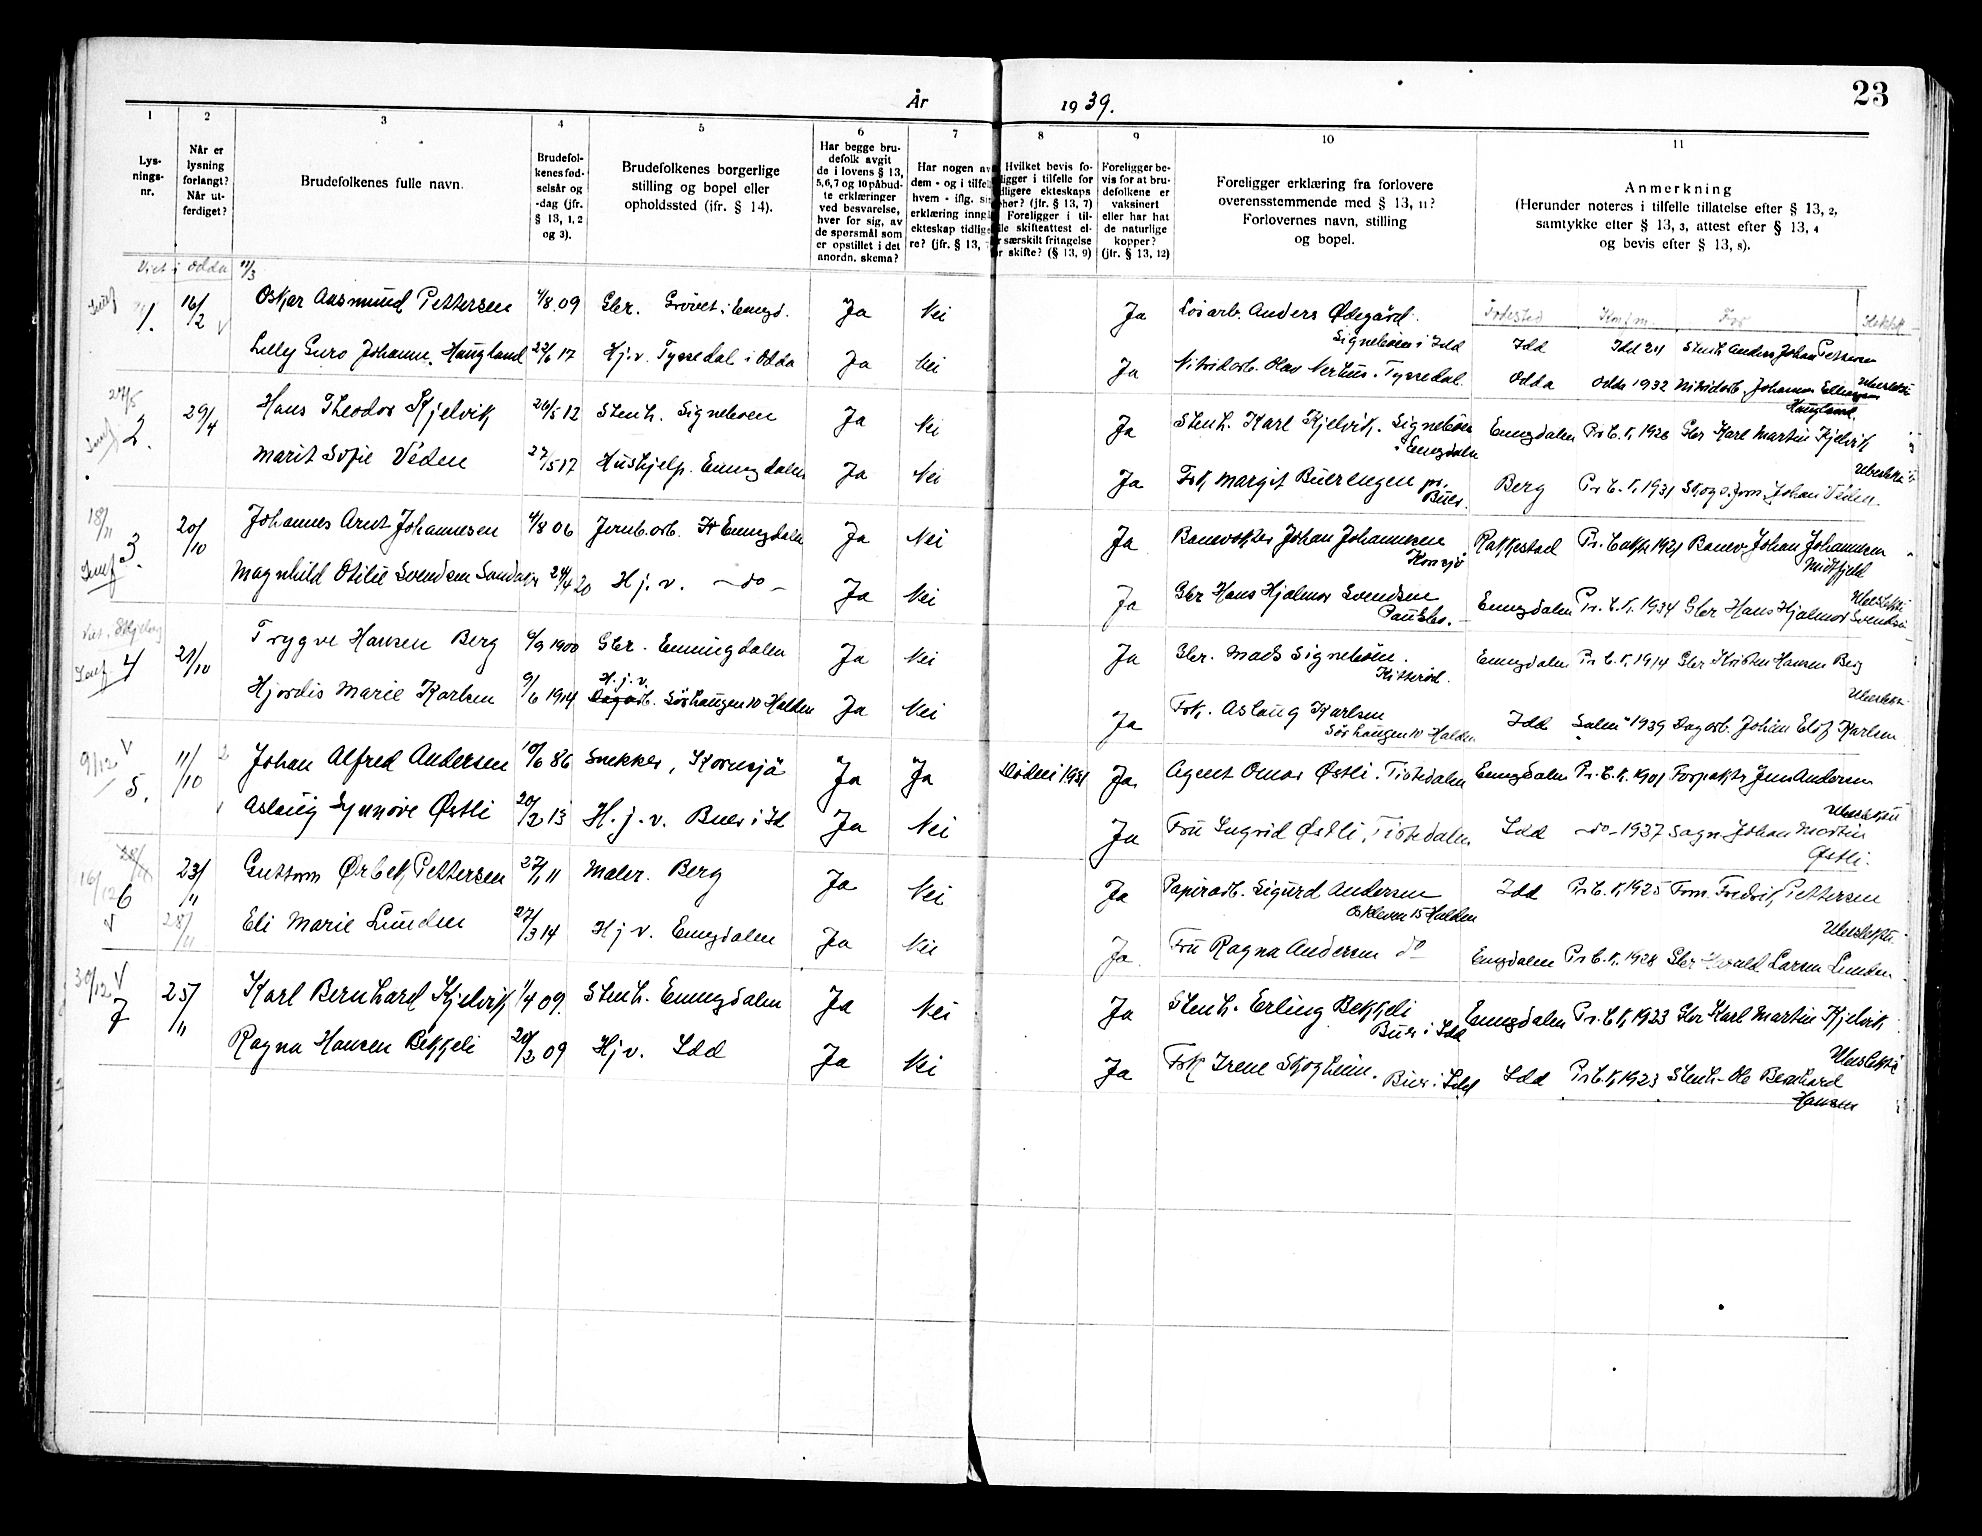 23
År 1939.
1 2 3 4 5 6 7 8 9 10 11
Lys-
nings-
nr.
Når er
lysning
forlangt?
Når ut-
ferdiget?
Brudefolkenes fulle navn.
Brudefol-
kenes fød-
selsår og
-dag (jfr.
§ 13, 1, 2
og 3).
Brudefolkenes borgerlige
stilling og bopel eller
opholdssted (jfr. § 14).
Har begge bru-
defolk avgit
de i lovens § 13,
5,6,7 og 10 påbud-
te erklæringer
ved besvarelse,
hver for sig, av
de spørsmål som
er opstillet i det
anordn. skema?
Har nogen av
dem - og i tilfelle
hvem - iflg.
erklæring inngått
ekteskap tidlige-
re? (jfr. § 13,
Hvilket bevis fo-
religger i tilfelle for
tidligere ekteskaps
ophør? (jfr. § 13, 7)
Foreligger i til-
felle skifteattest el-
ler særskilt fritagelse
for skifte? (§ 13, 9)
Foreligger be-
vis for at bru-
defolkene er
vaksinert
eller har hat
de naturlige
kopper?
(jfr. § 13, 12)
Foreligger erklæring fra forlovere
overensstemmende med § 13, 11?
Forlovernes navn, stilling
og bopel.
Anmerkning
(Herunder noteres i tilfelle tillatelse efter § 13, 2,
samtykke efter § 13, 3, attest efter § 13, 4
og bevis efter § 13, 8).
Viet i Odda 11/3
Fødested Konfm. Far
1. 16/2 Oskar Aasmund Pettersen 4/8 09 Gbr. Grövet i Enngd. Ja Nei Ja Løsarb. Anders Ødegård.
Signebøen i Idd Idd Idd 24 Stenh. Anders Johan Pettersen
Lilly Guro Johanne Haugland 22/6 17 Hj.v. Tyssedal i Odda Ja Nei Ja Nitridarb. Olav Nerhus. Tyssedal. Odda Odda 1932 Nitridarb. Johannes
Haugland.
27/5
2. 29/4 Hans Theodor Kjelvik 26/5 12 Stenh. Signebøen Ja Nei Ja Stenh. Karl Kjelvik, Signebøen
i Enngdalen Enngdalen Pr. b. k. 1928 Gbr Karl Martin Kjelvik
Marit Sofie Veden 27/5 17 Hushjelp. Enngdalen Ja Nei Ja Frk. Margit Buerengen pr.
Buer. Berg Pr. b. k. 1931 Skogs.form. Johan Veden.
18/11
3. 20/10 Johannes Arnt Johannesen 4/8 06 Jernb.arb. Enngdalen Ja Nei Ja Banevokter Johan Johannesen
Kornsjö Rakkestad 1921 Banev. Johan Johannesen
Magnhild Otilie Svendsen 24/4 20 Hj.v. - do - Ja Nei Ja Gbr Hans Hjalmar Svendsen
Enngdalen Pr. b. k. 1934 Gbr Hans Hjalmar Svendsen
4 21/10 Trygve Hansen Berg 6/9 1900 Gbr. Enningdalen Ja Nei Ja Gbr. Mads Signebøen.
Kitterød. Enngdalen Pr. b. k. 1914 Gbr Kristen Hansen Berg
Hjørdis Marie Karlsen 9/6 1914 H.j.v. Sørhaugen 10 Halden Ja Nei Ja Frk. Aslaug Karlsen
Sørhaugen 10 Halden Idd "Salem" 1939 Dagarb. Johan Elof Karlsen
9/12 V
5. 11/10 Johan Alfred Andersen 10/6 86 Snekker, Kornsjö Ja Ja Død i 1931 Ja Agent Omar Østli. Tistedalen Enngdalen Pr. b. k. 1901 Forpakter Jens Andersen
Aslaug Synnøve Østli 20/2 13 H.j.v. Buer i Id Ja Nei Ja Fru Ingrid Østli, Tistedalen Idd - do - 1937 Sagm. Johan Martin
Østli.
16/12
6 23/11 Guttorm Ørbek Pettersen 27/1 11 Maler. Berg Ja Nei Ja Papirarb. Sigurd Andersen
Oskleven 15 Halden Idd Pr. b. k. 1925 Form. Fredrik Pettersen
28/11 Eli Marie Lunden 27/3 14 Hj v. Enngdalen Ja Nei Ja Fru Ragna Andersen do Enngdalen Pr. b. k. 1928 Gbr Harald Larsen Lunden
30/12 V
7 25/11 Karl Bernhard Kjelvik 1/4 09. Stenh. Enngdalen Ja Nei Ja Stenh. Erling Bekkeli
Buer i Idd Enngdalen Pr. b. k. 1923 Gbr Karl Martin Kjelvik
Ragna Hansen Bekkeli 20/2 09 Hj v. Idd Ja Nei Ja Frk Irene Skogheim.
Buer i Idd Idd Pr b. k. 1923 Stenh. Ole Bernhard
Hansen